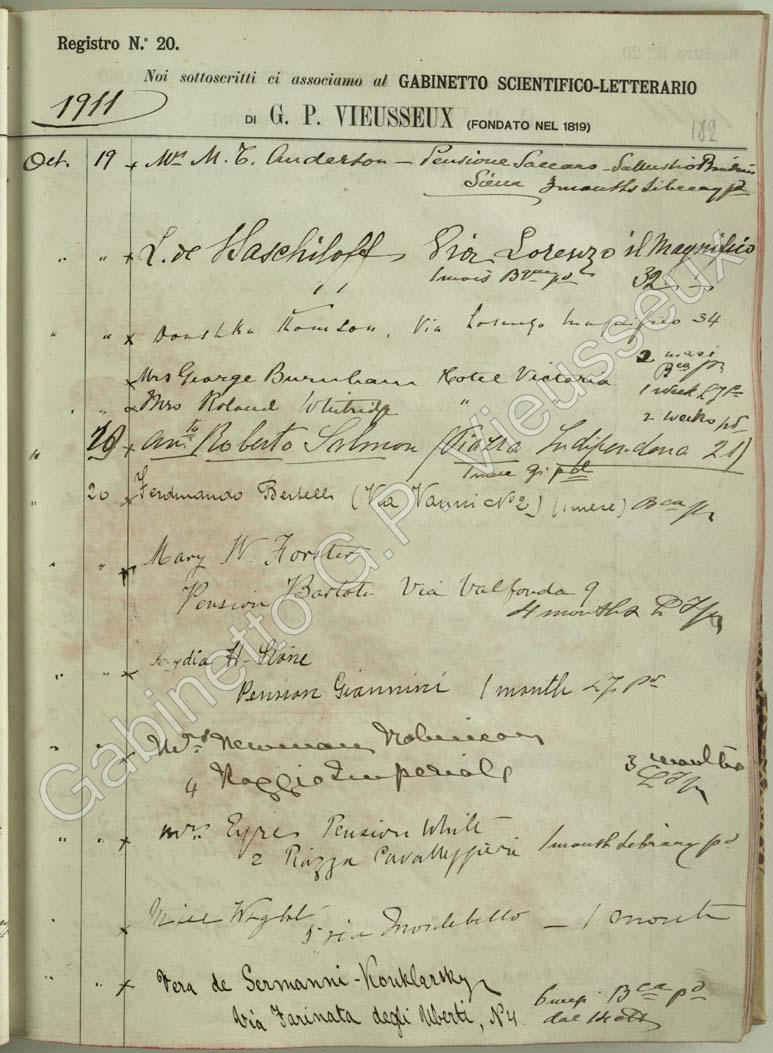 Registro N.° 20.
Noi sottoscritti ci associamo al GABINETTO SCIENTIFICO-LETTERARIO
1911
DI G. P. VIEUSSEUX (FONDATO NEL 1819)
182
Oct. 19 x Mrs M. T. Anderson — Pensione Saccaro - Sallustio
Siena 3 months Library pd
" " x L. de Haschiloff Via Lorenzo il Magnifico
1 mois pd 32
" " x Via Lorenzo Magnifico 34
2 mesi
x Mrs George Burnham Hotel Victoria Bca pd
1 week
" " x Mrs Roland Whitridge " 2 weeks pd
" 20 x Roberto Salmon (Piazza Indipendenza 21)
1 mese pd
" 20 x Ferdinando Bertelli (Via Vanni No 2) (1 mese) Bca
" " x Mary W. Forster
Pension Bartoli Via Valfonda 9
4 months
" " x Lydia H.
Pension Giannini 1 month pd
" " x Mrs Newman Robinson
4 Poggio Imperiale 3 months
" " x Mrs Eyres Pension White
2 Piazza Cavalleggieri 1 month Library pd
x Miss Wright 5 via Montebello — 1 month
" " x Vera de Sermanni-Kouklarsky
Via Farinata degli Uberti, N 4. 6 mesi Bca pd
Gabinetto G.P. Vieusseux